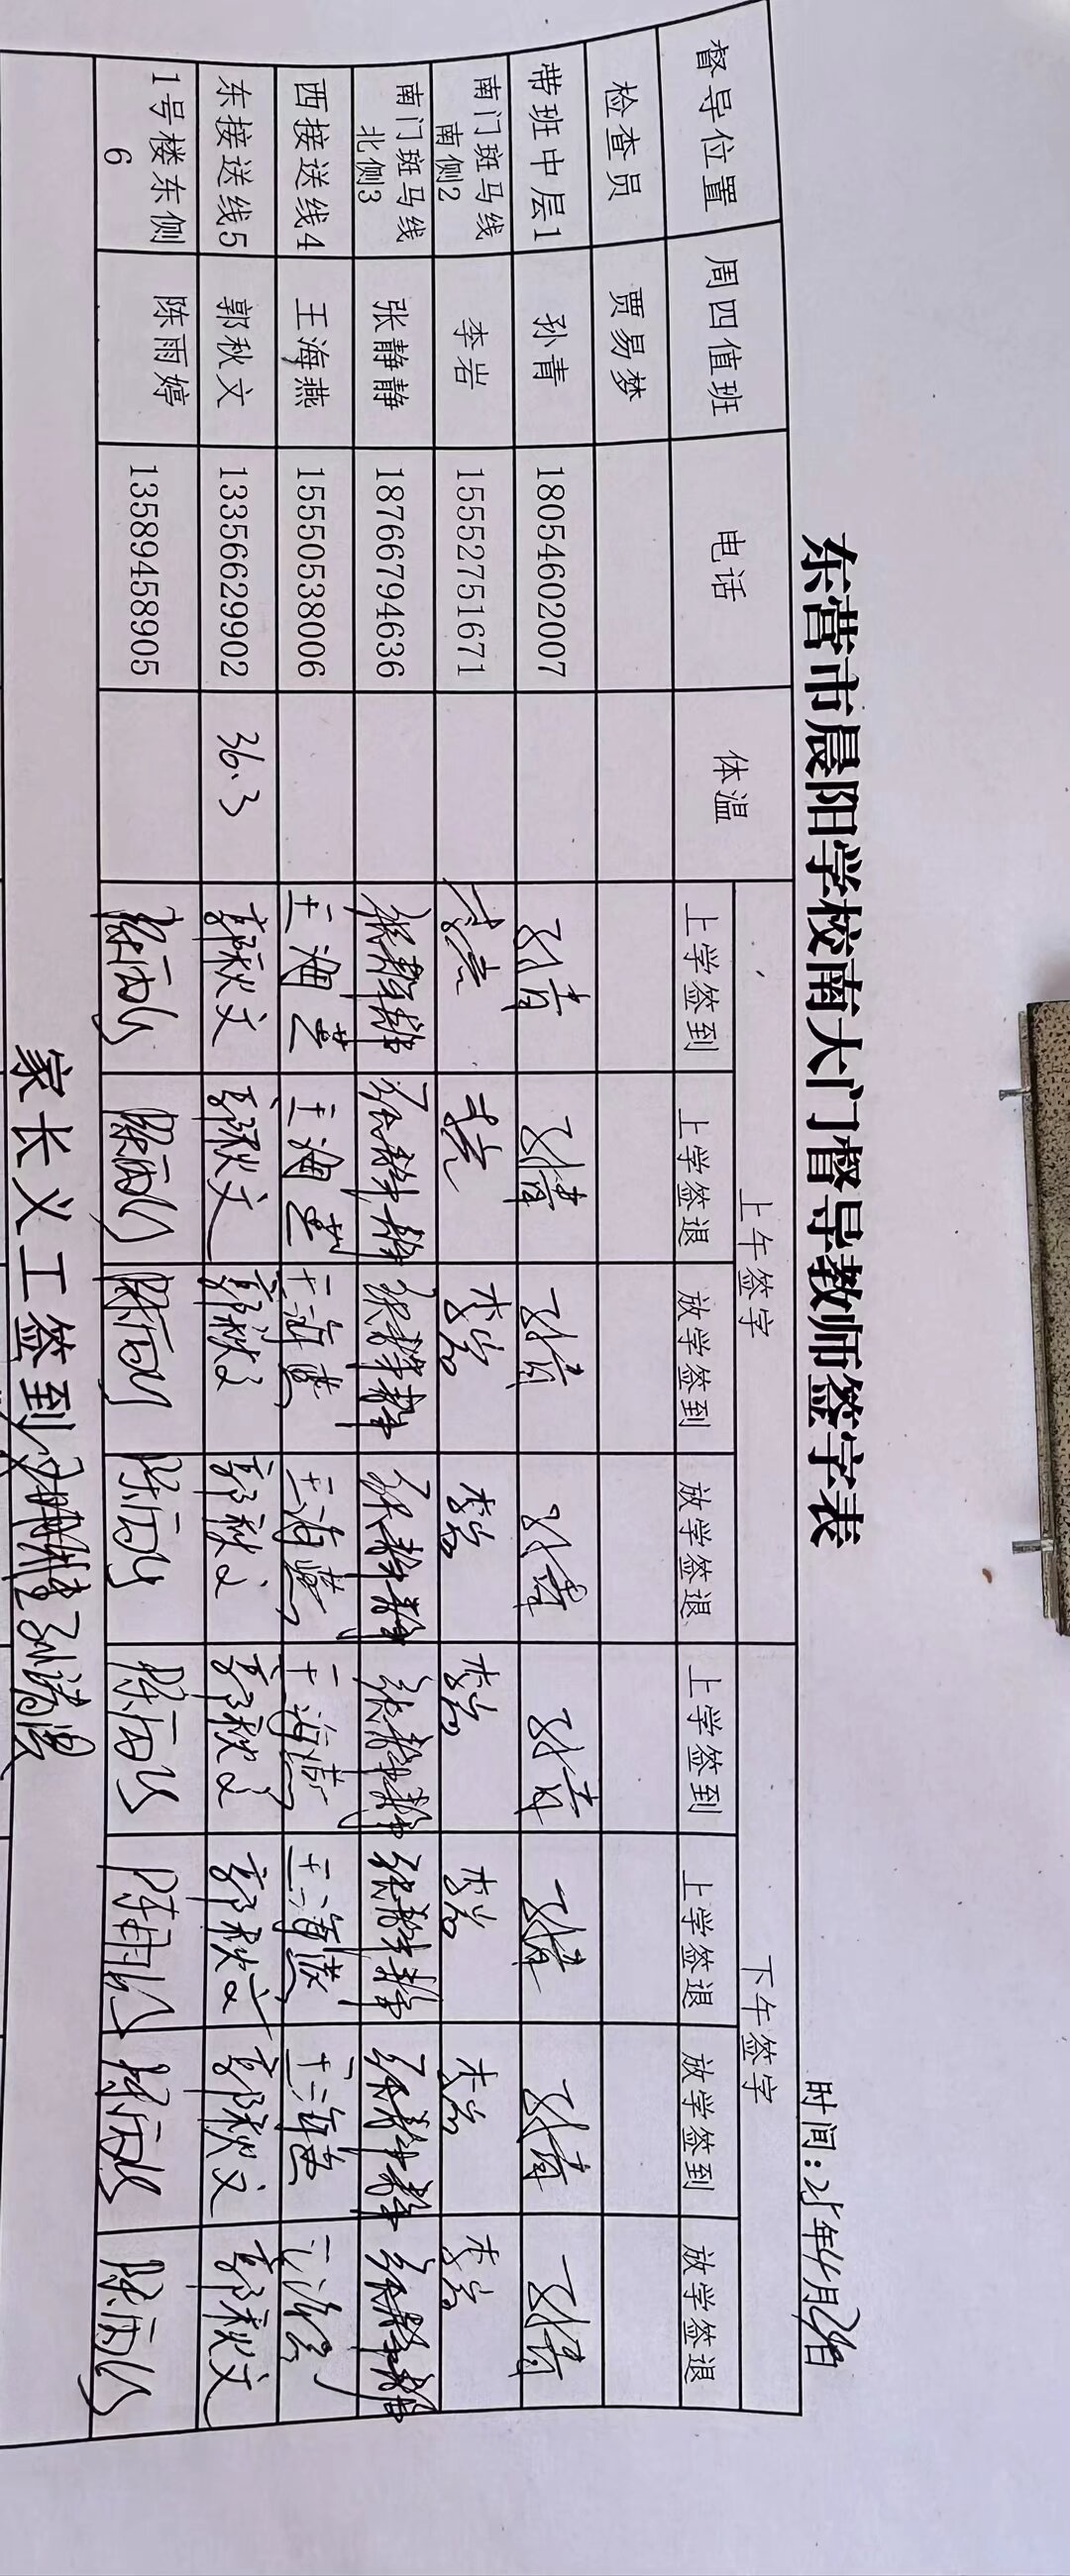 东营市晨阳学校南大门督导教师签字表
时间: 年 月 日
督导位置 周四值班 电话 体温 上午签字 下午签字
上学签到 上学签退 放学签到 放学签退 上学签到 上学签退 放学签到 放学签退
检查员 贾易梦
带班中层1 孙青 18054602007 孙青 孙青 孙青 孙青 孙青 孙青 孙青 孙青
南门斑马线南侧2 李岩 15552751671 李岩 李岩 李岩 李岩 李岩 李岩
南门斑马线北侧3 张静静 18766794636 张静静 张静静 张静静 张静静 张静静 张静静 张静静 张静静
西接送线4 王海燕 15550538006 王海燕 王海燕 王海燕 王海燕 王海燕
东接送线5 郭秋文 13356629902 36.3 郭秋文 郭秋文 郭秋文 郭秋文 郭秋文 郭秋文 郭秋文 郭秋文
1号楼东侧6 陈雨婷 13589458905
家长义工签到